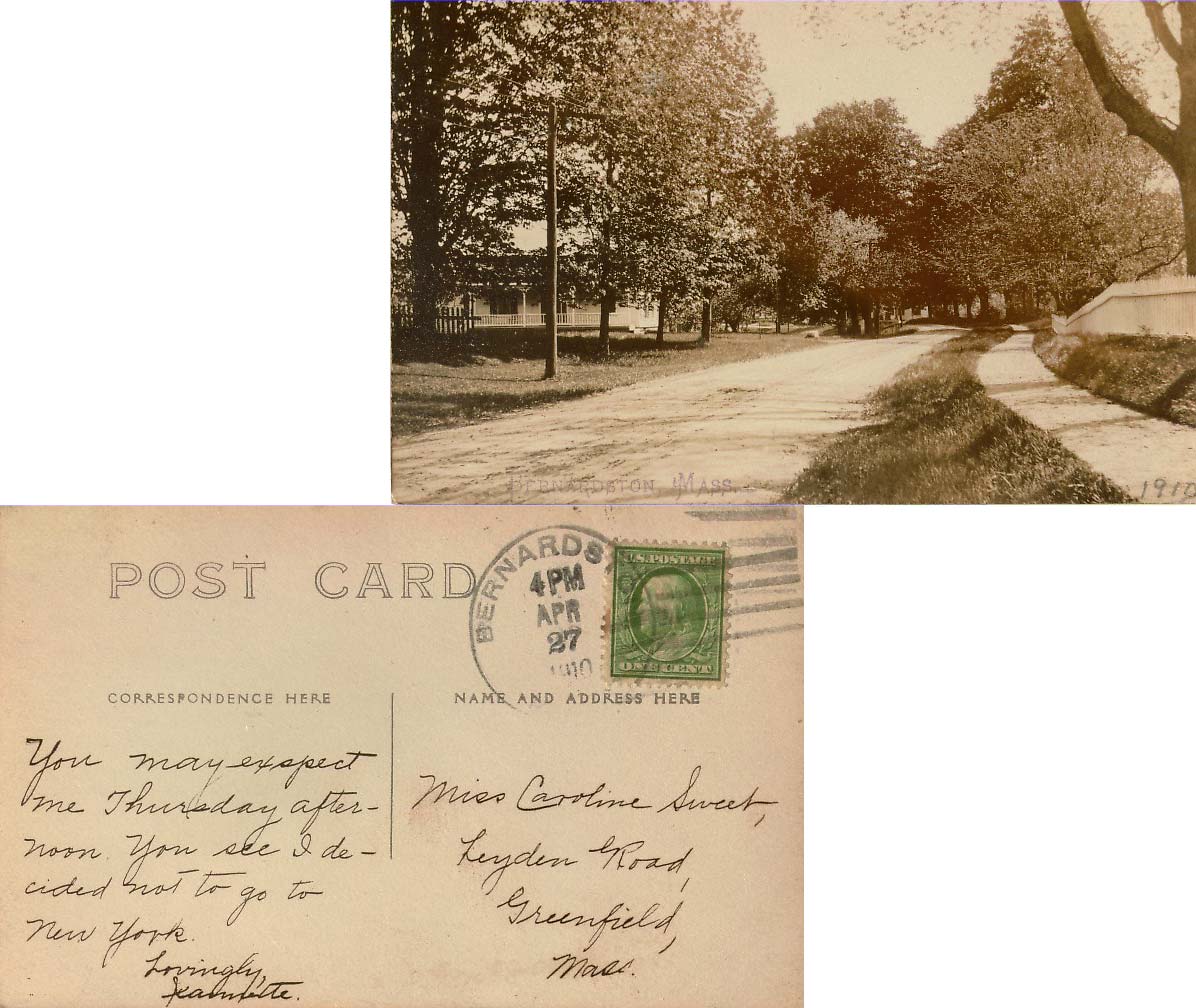 BERNARDSTON, MASS.
1910
POST CARD
BERNARDST
4 PM
APR
27
1910
U.S. POSTAGE
ONE CENT
CORRESPONDENCE HERE
NAME AND ADDRESS HERE
You may exspect
me Thursday after-
noon. You see I de-
cided not to go to
New York.
Lovingly,
Miss Caroline Sweet,
Leyden Road,
Greenfield,
Mass.